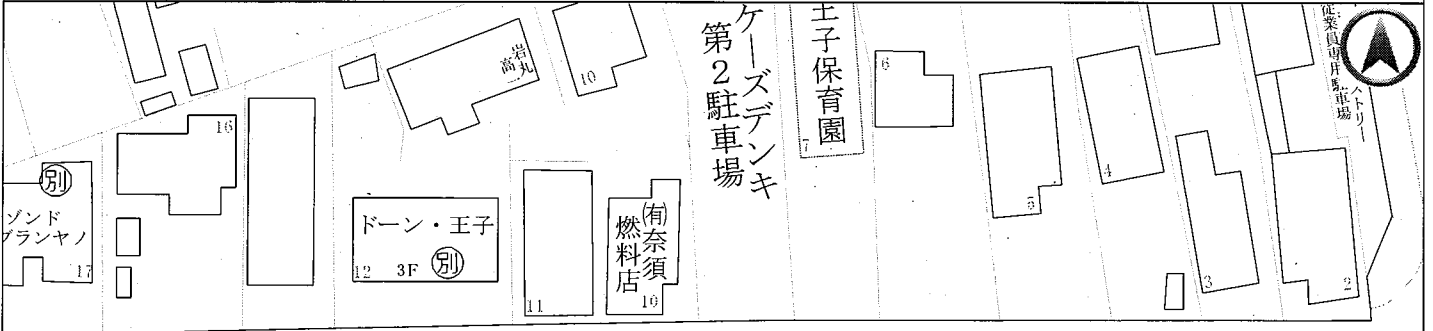 ケーズデンキ
第2駐車場
王子保育園
7
6
従業員専用駐車場
ストリー
岩丸
高一
10
16
別
ゾンド
ブランヤノ
17
ドーン・王子
12
3F
別
11
㈲奈須
燃料店
10
5
4
3
2